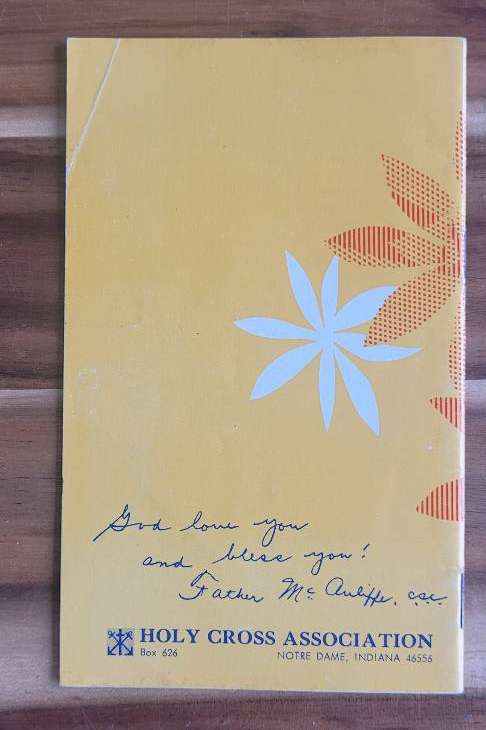 God love you
and bless you!
Father Mc Auliffe, csc.
HOLY CROSS ASSOCIATION
Box 626
NOTRE DAME, INDIANA 46556